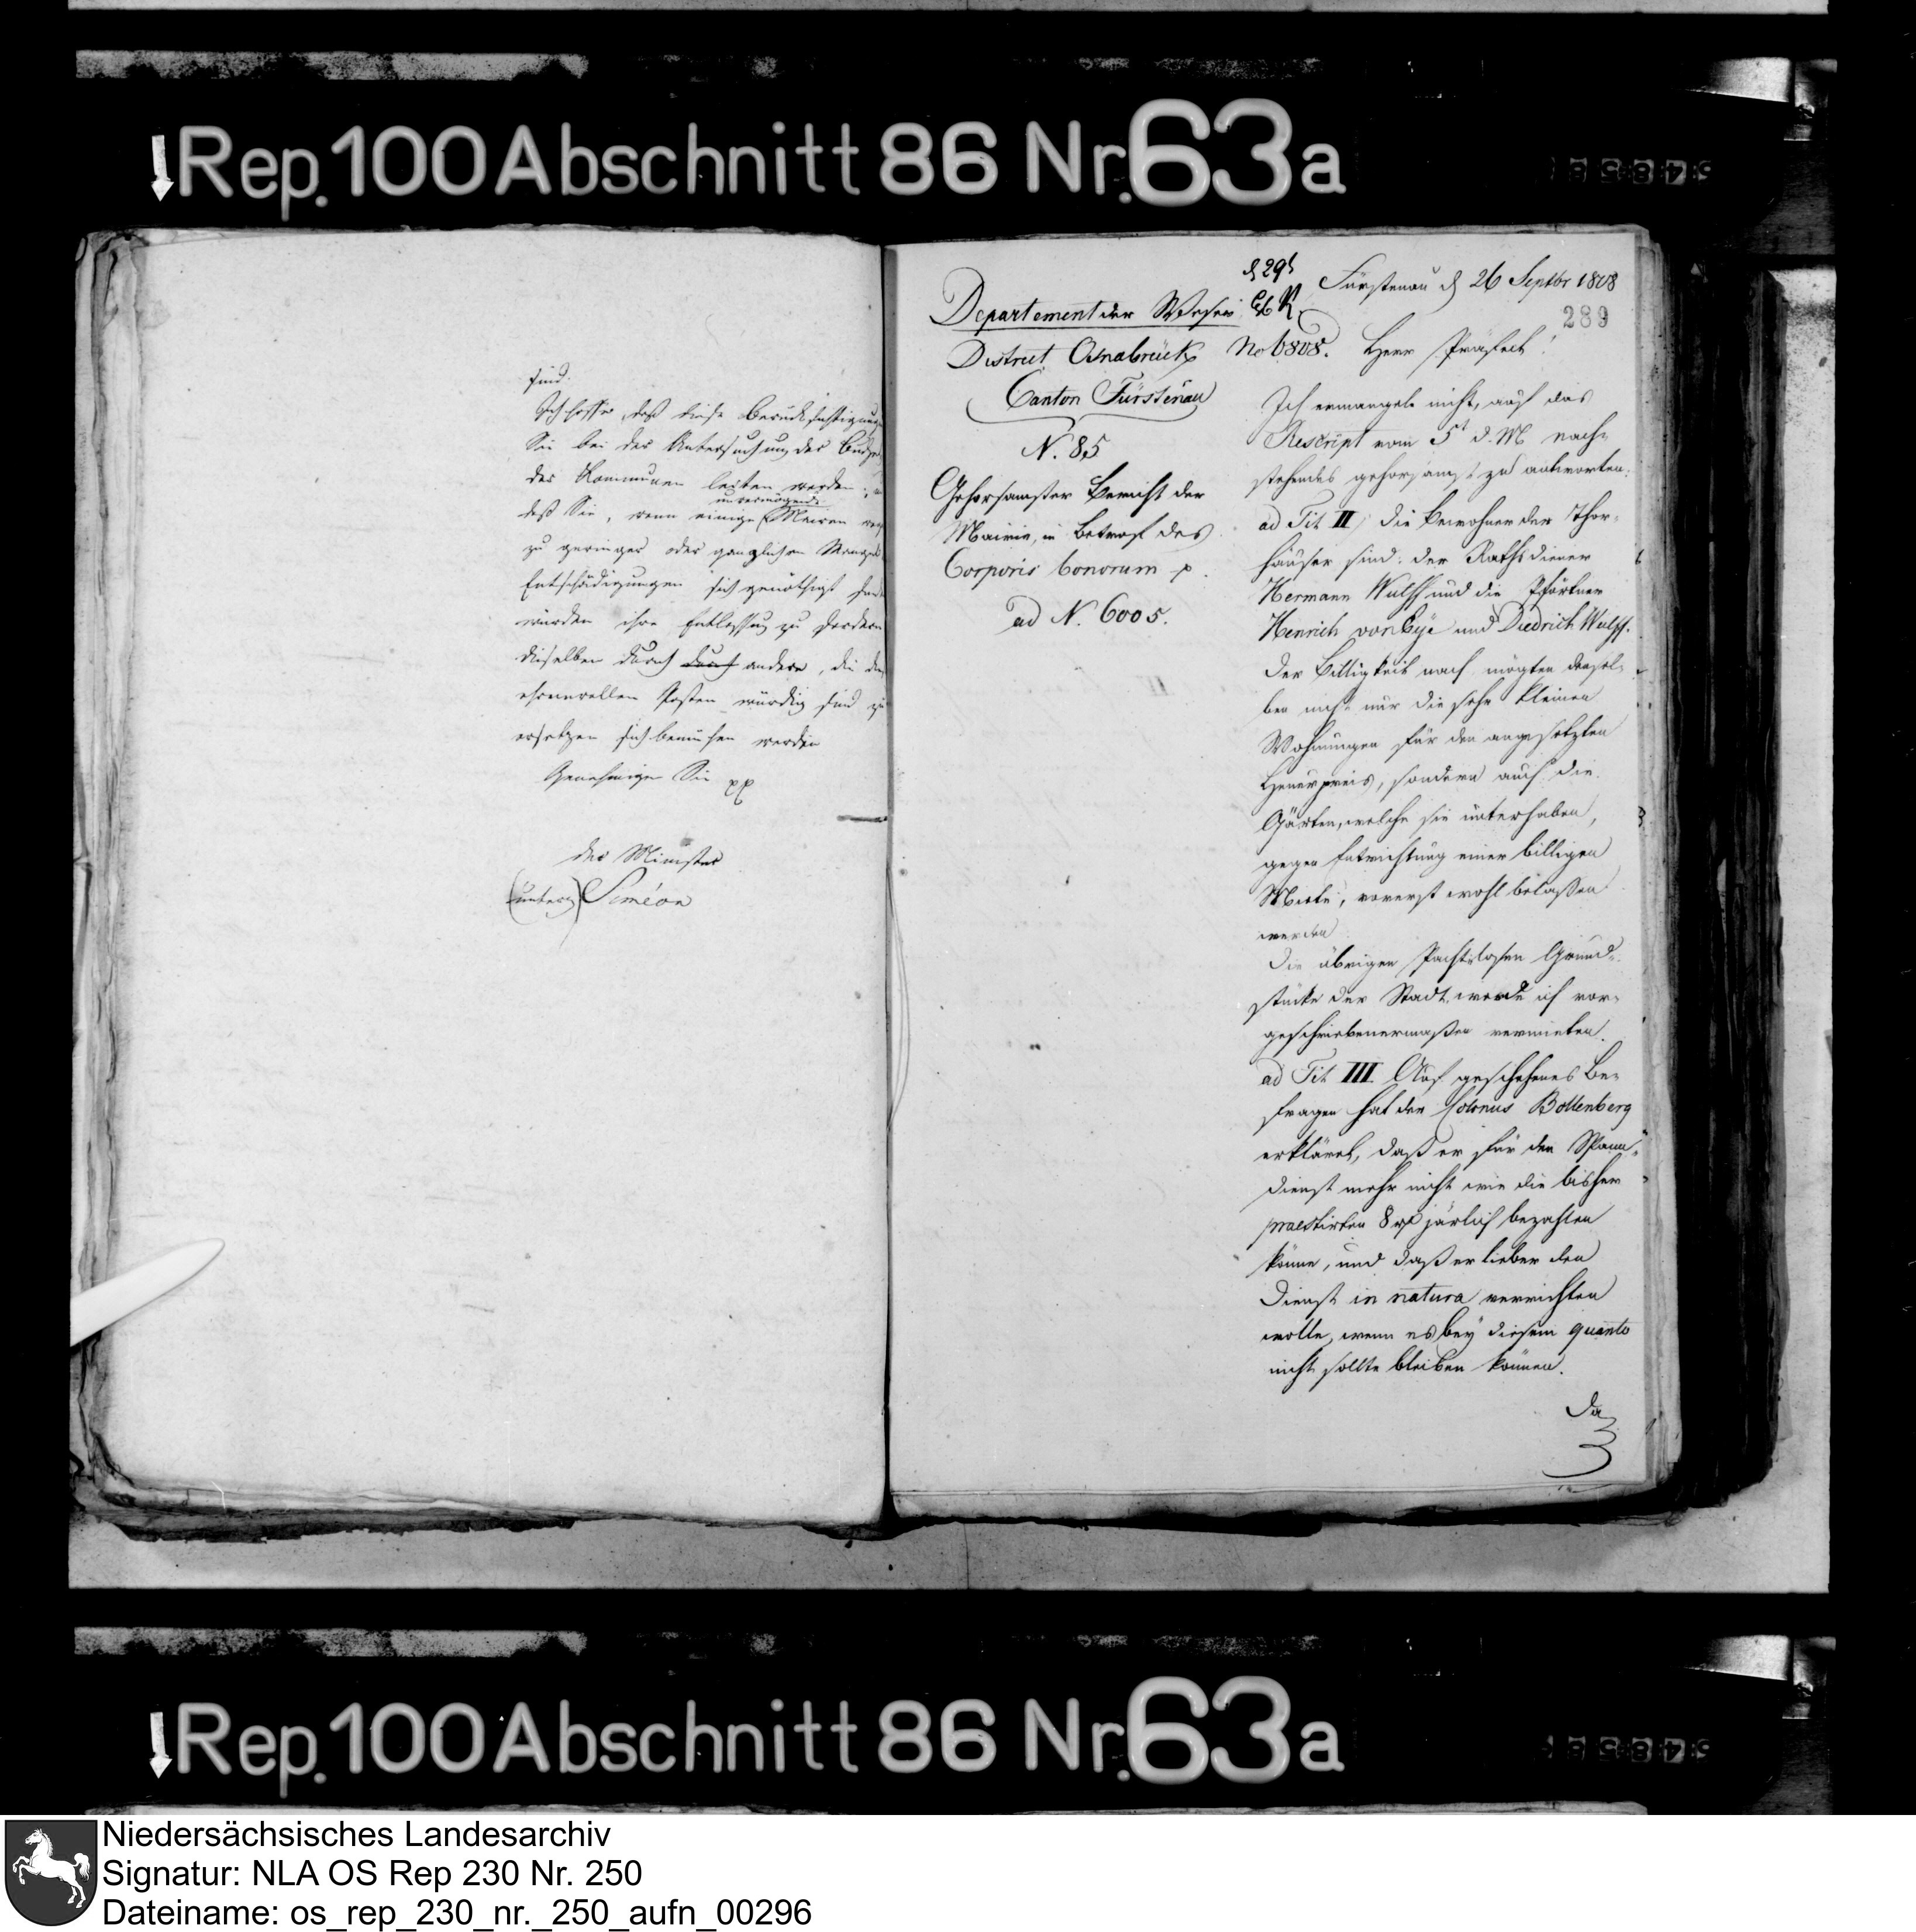 Rep. 100 Abschnitt 86 Nr. 63a
sind.
Ich hoffe, daß diese Berücksichtigung
Sie bei der Untersuchung der Budgets
der Kommunen leiten werden;
unvermögende
daß Sie, wenn einige Mairen wegen
zu geringer oder gänzlichen Mangels
Entschädigungen sich genöthigt sehen
würden ihre Entlassung zu fordern
dieselben durch durch andere, die des
ehrenvollen Posten würdig sind zu
ersetzen sich bemühen werden
Genehmigen Sie pp
Der Minister
(unterz) Siméon
d 29t
Fürstenau d 26 Septbr 1808
289
Departement der Weser
District Osnabrück
No 6808. Herr Präfect!
Canton Fürstenau
N. 85
Gehorsamster Bericht der
Mairie, in Betref des
Corporis bonorum p.
ad N. 6005.
Ich ermangele nicht, auf das
Rescript vom 5t d. M. nach-
stehendes gehorsamst zu antworten:
ad Tit II, die Bewohner der Thor-
häuser sind: der Rathsdiener
Hermann Wulff und die Pförtner
Henrich von Eye und Diedrich Wulff.
Der Billigkeit nach mögten densel-
ben nicht nur die sehr kleinen
Wohnungen für den angesetzten
Heuerpreis, sondern auch die
Gärten, welche sie unterhaben,
gegen Entrichtung einer billigen
Miete, vorerst wohl belaßen
werden
Die übrigen Pachtlosen Grund-
stücke der Stadt werde ich vor-
geschriebenermaßen vermieten.
ad Tit III Auf geschehenes Be-
fragen hat der Colonus Bottenberg
erkläret, daß er für den Spann-
dienst mehr nicht wie die bisher
praestirten 8 rt järlich bezahlen
könne, und daß er lieber den
Dienst in natura verrichten
wolle, wenn es bey diesem quanto
nicht sollte bleiben können.
Da
Rep. 100 Abschnitt 86 Nr. 63a
Niedersächsisches Landesarchiv
Signatur: NLA OS Rep 230 Nr. 250
Dateiname: os_rep_230_nr._250_aufn_00296